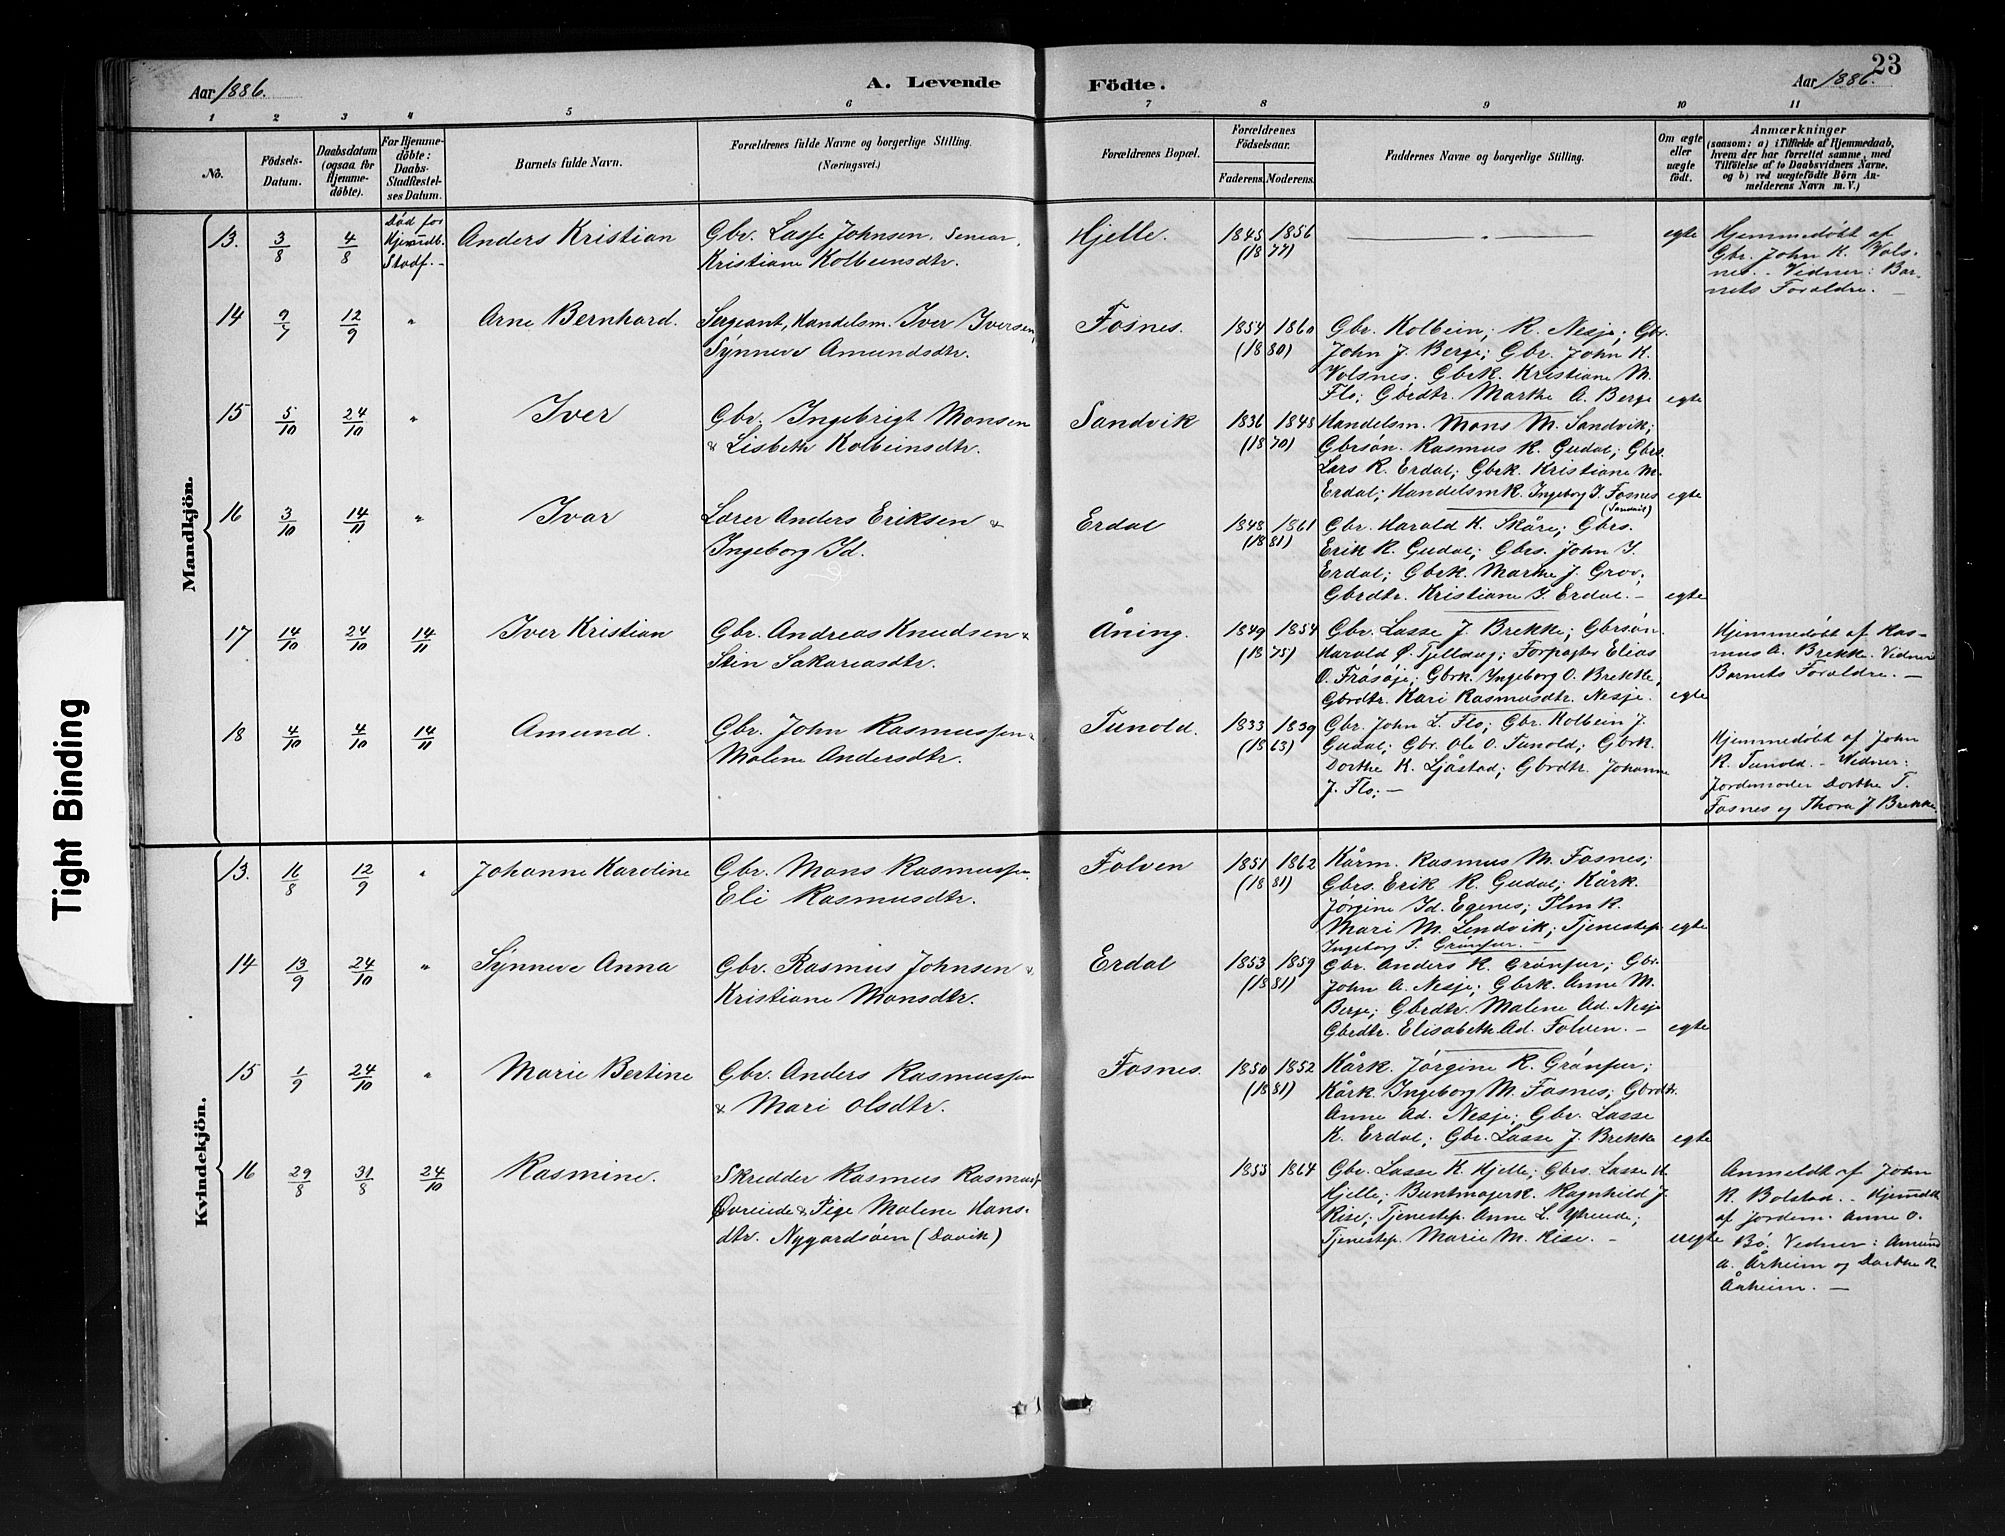 Aar 1886.
A. Levende
Födte.
Aar 1886.
23
1 2 3 4 5 6 7 8 9 10 11
No.
Födsels-
Datum.
Daabsdatum
(ogsaa for
Hjemme-
döbte).
For Hjemme-
döbte:
Daabs-
Stadfæstel-
ses Datum.
Barnets fulde Navn.
Forældrenes fulde Navne og borgerlige Stilling.
(Næringsvei.)
Forældrenes Bopæl.
Forældrenes
Födselsaar.
Faderens. Moderens.
Faddernes Navne og borgerlige Stilling.
Om ægte
eller
uægte
födt.
Anmærkninger
(saasom: a) i Tilfælde af Hjemmedaab,
hvem der har forrettet samme, med
Tilföielse af to Daabsvidners Navne,
og b) ved uægtefödte Börn An-
melderens Navn m. V.)
Mandkjön.
13. 3/8 4/8
Död før
Hjemdb.
Stadf. -
Anders Kristian
Gbr. Lasse Johnsen, Senior,
Kristiane Kolbeinsdtr.
Hjelle.
1845 1856
(18 77)
— „ —
egte
Hjemmedøbt af
Gbr. John K. Vols-
nes. - Vidner: Bar-
nets Forældre. —
14 9/9 12/9 „
Arne Bernhard.
Sergeant, Handelsm. Iver Iversen,
Synneve Amundsdtr.
Fosnes.
1854 1860
(18 80)
Gbr. Kolbein, R. Nesje; Gbr.
John J. Berge; Gbr. John K.
Volsnes. Gbrk. Kristiane M.
Flo; Gbrdtr. Marthe A. Berge
egte
15 5/10 24/10 „
Iver
Gbr. Ingebrigt Monsen
& Lisbeth Kolbeinsdtr.
Sandvik
1836 1848
(18 70)
Handelsm. Mons M. Sandvik;
Gbrsøn. Rasmus R. Gudal; Gbrs.
Lars R. Erdal; Gbrk. Kristiane M.
Erdal; Handelsmk. Ingeborg I. Fosnes
(Sandvik)
egte
16 3/10 14/11 „
Ivar
Lærer Anders Eriksen &
Ingeborg Id.
Erdal
1848 1861
(18 81)
Gbr. Harald K. Skåre; Gbrs.
Erik R. Gudal; Gbrs. John I.
Erdal; Gbrk. Marthe J. Grov;
Gbrdtr. Kristiane I. Erdal. -
egte
17 14/10 24/10 14/11
Iver Kristian
Gbr. Andreas Knudsen &
Stin Sakariasdtr.
Åning.
1849 1854
(18 75)
Gbr. Lasse J. Brekke; Gbrsøn.
Harald Ø. Tjellaug; Forpagter Elias
O. Frøsøje; Gbrk. Ingeborg O. Brekke,
Gbrdtr. Kari Rasmusdtr. Nesje.
egte
Hjemmedøbt af Ras-
mus A. Brekke. Vidner
Barnets Forældre. —
18 4/10 4/10 14/11
Amund.
Gbr. John Rasmussen &
Malene Andersdtr.
Tunold.
1833 1839
(18 63)
Gbr. John L. Flo; Gbr. Kolbein J.
Gudal; Gbr. Ole O. Tunold; Gbrk.
Dorthe K. Ljåstad; Gbrdtr. Johanne
J. Flo; —
Hjemmedøbt af John
R. Tunold. - Vidner:
Jordemoder Dorthe T.
Fosnes og Thora J. Brekke.
Kvindekjön.
13. 16/8 12/9 „
Johanne Karoline
Gbr. Mons Rasmussen.
Eli Rasmusdtr.
Folven
1851 1862
(18 81)
Kårm. Rasmus M. Fosnes;
Gbrs. Erik R. Gudal; Kårk.
Jørgine Id. Egenes; Plmk.
Mari M. Lendvik; Tjenestep.
Ingeborg T. Grønfur. -
egte
14 13/9 24/10 „
Synneve Anna
Gbr. Rasmus Johnsen &
Kristiane Monsdtr.
Erdal
1853 1859
(18 81)
Gbr. Anders R. Grønfur; Gbr.
John A. Nesje; Gbrk. Anne M.
Berge; Gbrdtr. Malene Ad. Nesje
Gbrdtr. Elisabeth Ad. Folven. -
egte
15 1/9 24/10 „
Marie Bertine
Gbr. Anders Rasmussen
& Mari Olsdtr.
Fosnes.
1850 1852
(18 81)
Kårk. Jørgine R. Grønfur;
Kårk. Ingeborg M. Fosnes; Gbrdtr.
Anne Ad. Nesje; Gbr. Lasse
K. Erdal; Gbr. Lasse J. Brekke
egte
16 29/8 31/8 24/10
Rasmine.
Skredder Rasmus Rasmuss.
Øvreeide & Pige Malene Hans-
dtr. Nygardsøen (Davik)
1853 1864
Gbr. Lasse K. Hjelle; Gbrs. Lasse K.
Hjelle; Buntmagerk. Ragnhild J.
Rise; Tjenestep. Anne L. Ytreeide;
Tjenestep. Marie M. Rise. -
uegte
Anmeldt af John
R. Bolstad. - Hjemdbt
af Jordem. Anne O.
Bø. Vidner: Amund
A. Årheim og Dorthe R.
Årheim. —
Tight Binding